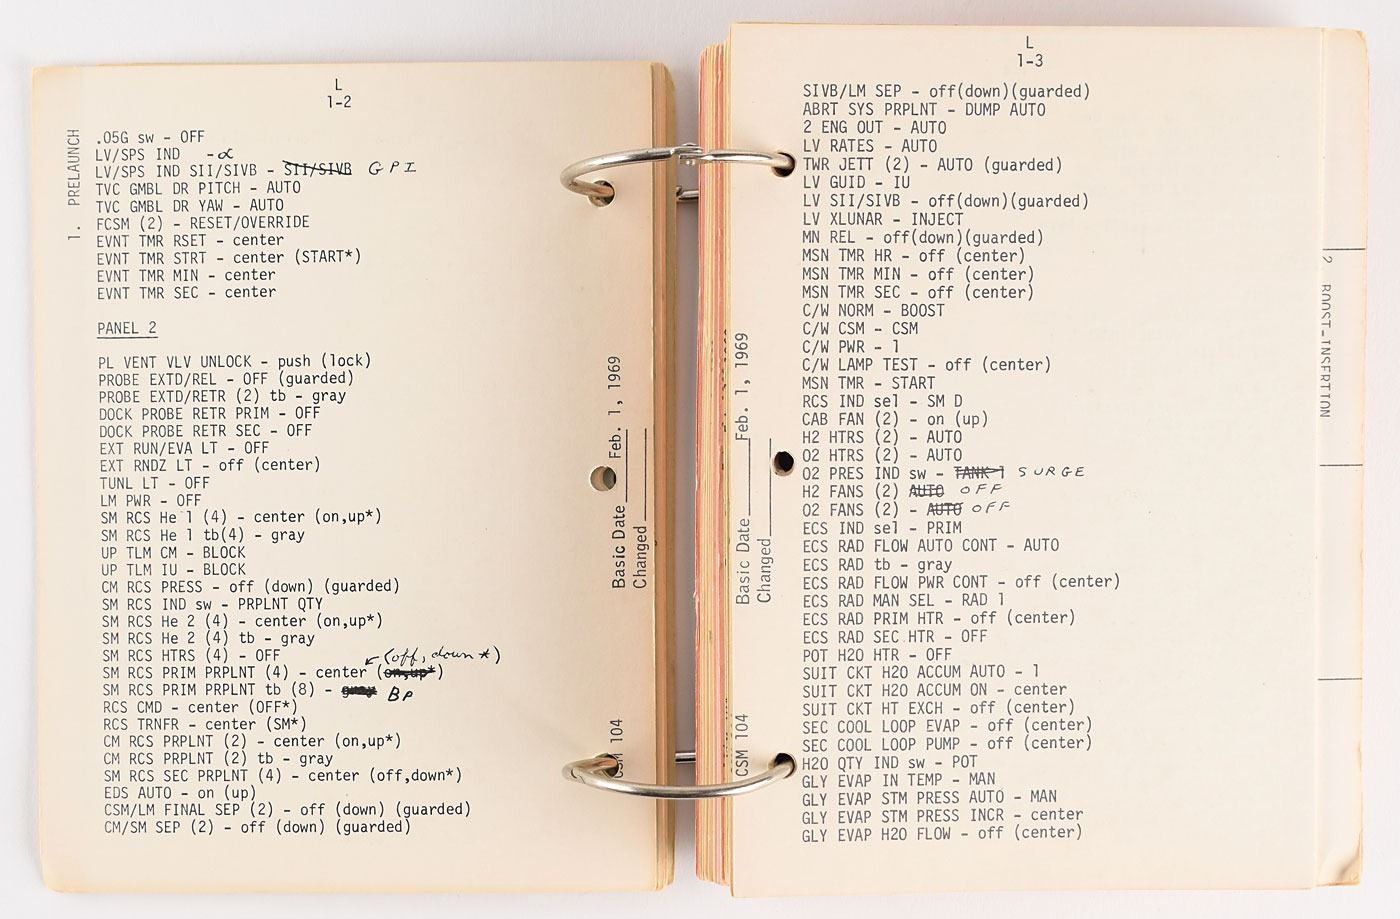 L
1-2
1. PRELAUNCH
.05G sw - OFF
LV/SPS IND -α
LV/SPS IND SII/SIVB - SII/SIVB GPI
TVC GMBL DR PITCH - AUTO
TVC GMBL DR YAW - AUTO
FCSM (2) - RESET/OVERRIDE
EVNT TMR RSET - center
EVNT TMR STRT - center (START*)
EVNT TMR MIN - center
EVNT TMR SEC - center
PANEL 2
PL VENT VLV UNLOCK - push (lock)
PROBE EXTD/REL - OFF (guarded)
PROBE EXTD/RETR (2) tb - gray
DOCK PROBE RETR PRIM - OFF
DOCK PROBE RETR SEC - OFF
EXT RUN/EVA LT - OFF
EXT RNDZ LT - off (center)
TUNL LT - OFF
LM PWR - OFF
SM RCS He 1 (4) - center (on,up*)
SM RCS He 1 tb(4) - gray
UP TLM CM - BLOCK
UP TLM IU - BLOCK
CM RCS PRESS - off (down) (guarded)
SM RCS IND sw - PRPLNT QTY
SM RCS He 2 (4) - center (on,up*)
SM RCS He 2 (4) tb - gray
SM RCS HTRS (4) - OFF
(off, down *)
SM RCS PRIM PRPLNT (4) - center (on,up*)
SM RCS PRIM PRPLNT tb (8) - gray BP
RCS CMD - center (OFF*)
RCS TRNFR - center (SM*)
CM RCS PRPLNT (2) - center (on,up*)
CM RCS PRPLNT (2) tb - gray
SM RCS SEC PRPLNT (4) - center (off,down*)
EDS AUTO - on (up)
CSM/LM FINAL SEP (2) - off (down) (guarded)
CM/SM SEP (2) - off (down) (guarded)
Basic Date Feb. 1, 1969
Changed
CSM 104
L
1-3
SIVB/LM SEP - off(down)(guarded)
ABRT SYS PRPLNT - DUMP AUTO
2 ENG OUT - AUTO
LV RATES - AUTO
TWR JETT (2) - AUTO (guarded)
LV GUID - IU
LV SII/SIVB - off(down)(guarded)
LV XLUNAR - INJECT
MN REL - off(down)(guarded)
MSN TMR HR - off (center)
MSN TMR MIN - off (center)
MSN TMR SEC - off (center)
C/W NORM - BOOST
C/W CSM - CSM
C/W PWR - 1
C/W LAMP TEST - off (center)
MSN TMR - START
RCS IND sel - SM D
CAB FAN (2) - on (up)
H2 HTRS (2) - AUTO
O2 HTRS (2) - AUTO
O2 PRES IND sw - TANK 1 SURGE
H2 FANS (2) AUTO OFF
O2 FANS (2) - AUTO OFF
ECS IND sel - PRIM
ECS RAD FLOW AUTO CONT - AUTO
ECS RAD tb - gray
ECS RAD FLOW PWR CONT - off (center)
ECS RAD MAN SEL - RAD 1
ECS RAD PRIM HTR - off (center)
ECS RAD SEC HTR - OFF
POT H2O HTR - OFF
SUIT CKT H2O ACCUM AUTO - 1
SUIT CKT H2O ACCUM ON - center
SUIT CKT HT EXCH - off (center)
SEC COOL LOOP EVAP - off (center)
SEC COOL LOOP PUMP - off (center)
H2O QTY IND sw - POT
GLY EVAP IN TEMP - MAN
GLY EVAP STM PRESS AUTO - MAN
GLY EVAP STM PRESS INCR - center
GLY EVAP H2O FLOW - off (center)
Basic Date Feb. 1, 1969
Changed
CSM 104
2 BOOST-INSERTION